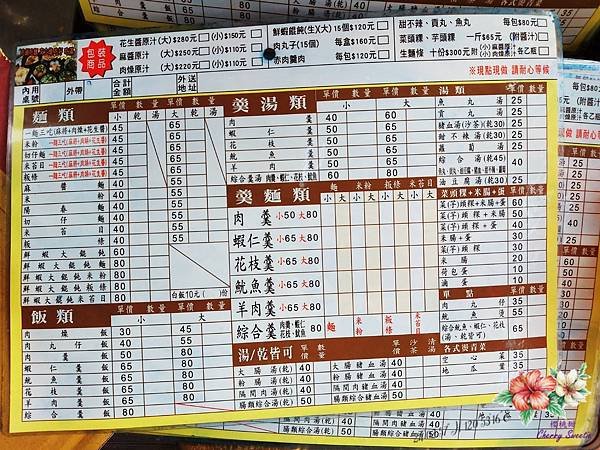 包裝商品
花生醬原汁(大)$280元 (小)$150元
麻醬原汁 (大)$220元 (小)$110元
肉燥原汁 (大)$250元 (小)$110元
鮮蝦餛飩(生)(大)15個$120元
肉丸子(15個) 每盒$160元
赤肉醃肉 每包$120元
甜不辣、貢丸、魚丸 每包$80元
菜頭粿、芋頭粿 一斤65元 (附醬汁)
生麵條 十份$300元
※現點現做 請耐心等候
內用桌號 外帶 合計金額 外送地址
麵類 單價 數量 單價 數量
小 乾 湯 大 乾 湯
一麵三吃(麻醬+肉燥+花生醬) 45 65
米粉 一麵三吃(麻醬+肉燥+花生醬) 45 65
切仔麵 一麵三吃(麻醬+肉燥+花生醬) 45 65
米苔目 一麵三吃(麻醬+肉燥+花生醬) 45 65
板條 一麵三吃(麻醬+肉燥+花生醬) 45 65
麻醬麵 40 55
米粉 40 55
陽春麵 40 55
切仔麵 40 55
米苔目 40 55
板條 40 55
鮮蝦大餛飩 60
鮮蝦大餛飩麵 80
鮮蝦大餛飩米粉 80
鮮蝦大餛飩板條 80
鮮蝦大餛飩米苔目 80
白飯10元( )份
飯類 單價 數量 單價 數量
小 大
肉燥飯 30 45
肉丸仔飯 40 55
肉羹飯 50 80
蝦仁羹飯 65 80
魷魚羹飯 65 80
花枝羹飯 65 80
羊肉羹飯 65 80
綜合羹飯 80
羹湯類 單價 數量 單價 數量
小 大
肉羹 40 60
蝦仁羹 50 65
花枝羹 50 65
魷魚羹 50 65
羊肉羹 50 65
綜合羹湯 肉羹、蝦仁、花枝、魷魚 65
羹麵類 麵 米粉 板條 米苔目
小 大 小 大 小 大 小 大
肉羹 小50 大80
蝦仁羹 小65 大80
花枝羹 小65 大80
魷魚羹 小65 大80
羊肉羹 小65 大80
綜合羹 肉羹、蝦仁 花枝、魷魚 80 麵 米粉 板條 米苔目
湯/乾皆可 單價 數量 單價 沙茶 清湯
大腸湯(乾) 40 大腸豬血湯 40
粉腸湯(乾) 40 粉腸豬血湯 40
隔間肉湯(乾) 40 隔間肉豬血湯 40
腸類綜合湯(乾) 50 腸類綜合豬血湯 50
湯類 單價 數量
魚丸湯 25
貢丸湯 25
豬血湯(沙茶)(乾30) 25
甜不辣湯(乾30) 25
蘿蔔湯 25
綜合湯(乾45) 40
油豆腐湯(乾30) 25
菜頭粿+米腸+蛋 單價 數量
菜(芋)頭粿+米腸+蛋 50
菜(芋)頭粿+米腸 40
菜(芋)頭粿+蛋 40
米腸+蛋 30
菜(芋)頭粿 30
米腸 20
荷包蛋 10
滷蛋 10
單點 單價 數量
肉丸仔 35
魷魚燙 55
綜合魷魚、蝦仁、花枝(湯、乾皆可) 65
各式燙青菜 單價 數量
空心菜 35
地瓜葉 35
櫻桃樹
Cherry Sweety